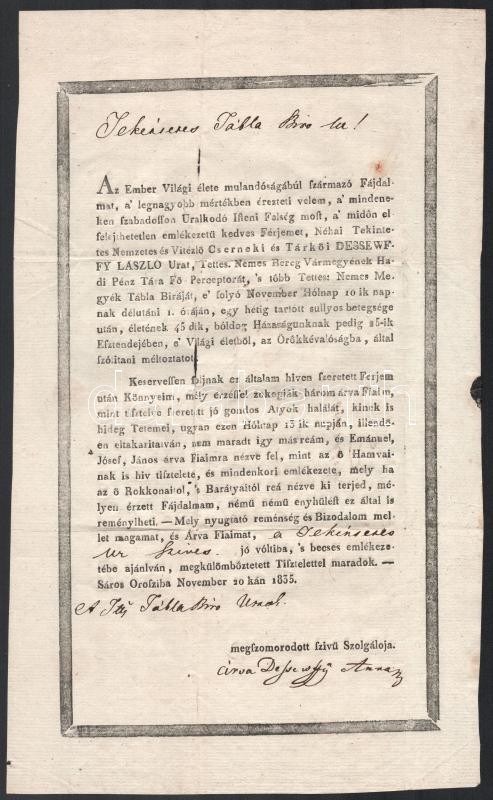 Tekéntetes Tábla Biro Ur!
Az Ember Világi élete mulandóságábúl származó Fájdal-
mat, a' legnagyobb mértékben érezteti velem, a' mindene-
ken szabadossan Uralkodó Isteni Felség most, a' midőn el-
felejthetetlen emlékezetű kedves Férjemet, Néhai Tekinte-
tes Nemzetes és Vitézlő Cserneki és Tárkői DESSEWF-
FY LÁSZLÓ Urat, Tettes. Nemes Bereg Vármegyének Ha-
di Pénz Tára Fő Perceptorát, 's több Tettes: Nemes Me-
gyék Tábla Biráját, e' folyó November Hólnap 10 ik nap-
nak délutáni 1. óráján, egy hétig tartott sullyos betegsége
után, életének 45 dik, bóldog Házaságunknak pedig 25-ik
Esztendejében, e' Világi életből, az Örökkévalóságba, által
szólitani méltoztatott.
Keservessen foljnak ez általam hiven szeretett Férjem
után Könnyeim, mély érzéssel zokogják három árva Fiaim,
mint tisztelve szeretett jó gondos Atyok halálát, kinek is
hideg Tetemei, ugyan ezen Hólnap 13 ik napján, illendő-
en eltakaritatván, nem maradt igy más reám, és Emánuel,
Jósef, János árva Fiaimra nézve fel, mint az ő Hamvai-
nak is hiv tisztelete, és mindenkori emlékezete, mely ha
az ő Rokkonaitol, 's Barátyaitól reá nézve ki terjed, mé-
lyen érzett Fájdalmam, némű némű enyhülést ez által is
reménylheti. — Mely nyugtató reménség és Bizodalom mel-
let magamat, és Árva Fiaimat, a Tekéntetes
Ur Szives jó vóltiba, 's becses emlékeze-
tébe ajánlván, megkülömböztetett Tisztelettel maradok. —
Sáros Orosziba November 20 kán 1835.
A Ttts Tábla Biro Urnak
megszomorodott szivü Szolgálója.
árva Dessewffy Anna